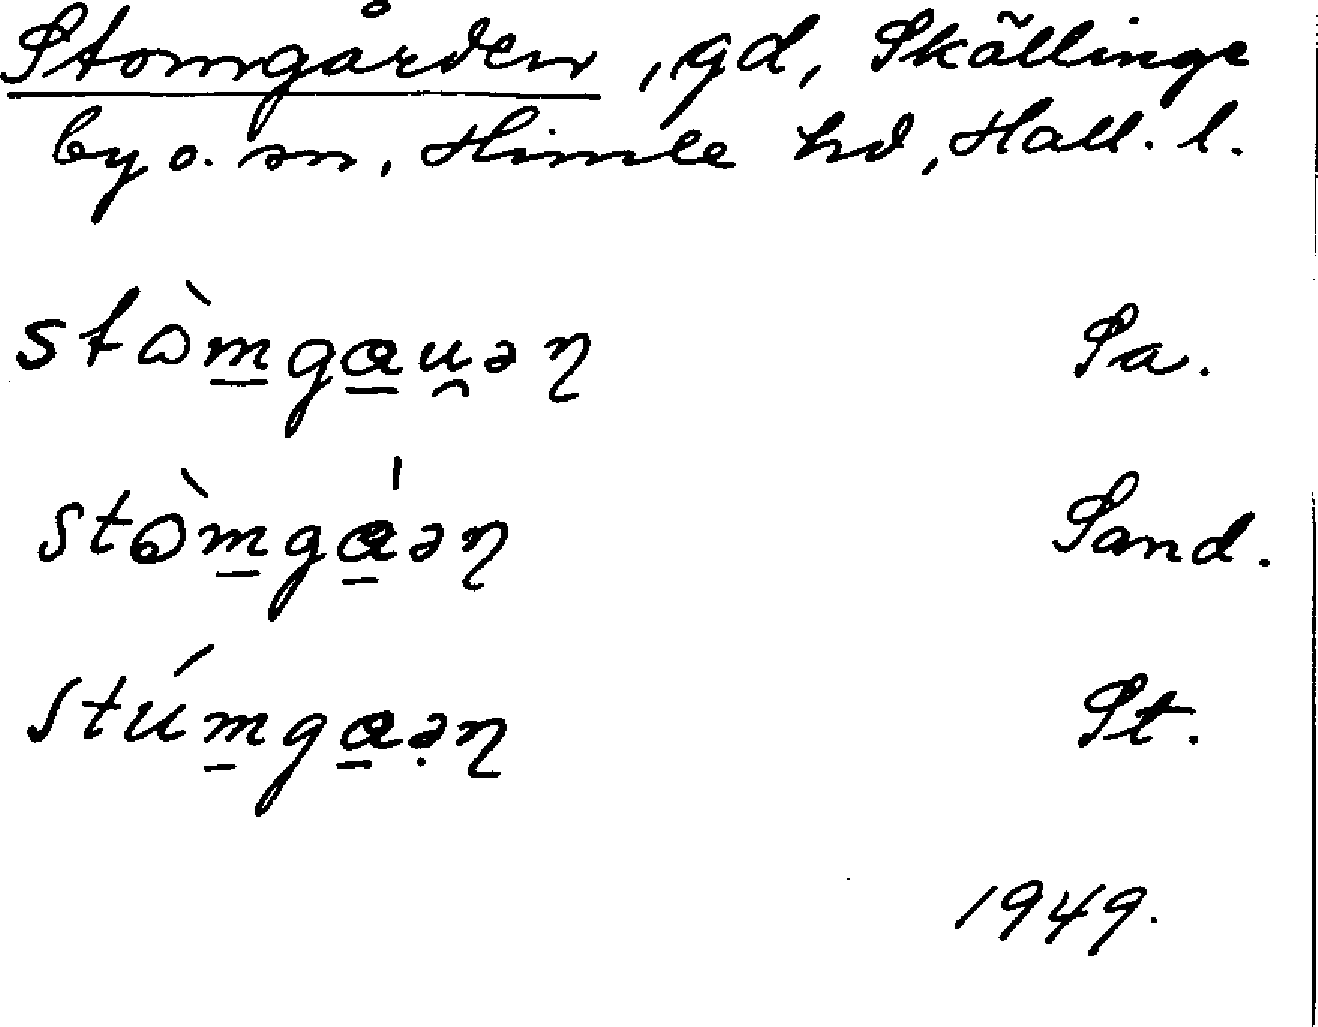 Stomgården, gd, Skällinge
by o. sn, Himle hd, Hall. l.
stɷ̀m̱gɑ̱u̯əɳ Sa.
stɷ̀m̱gɑ̱̍əɳ Sand.
stúm̱gɑ̱ə̣ɳ St.
1949.